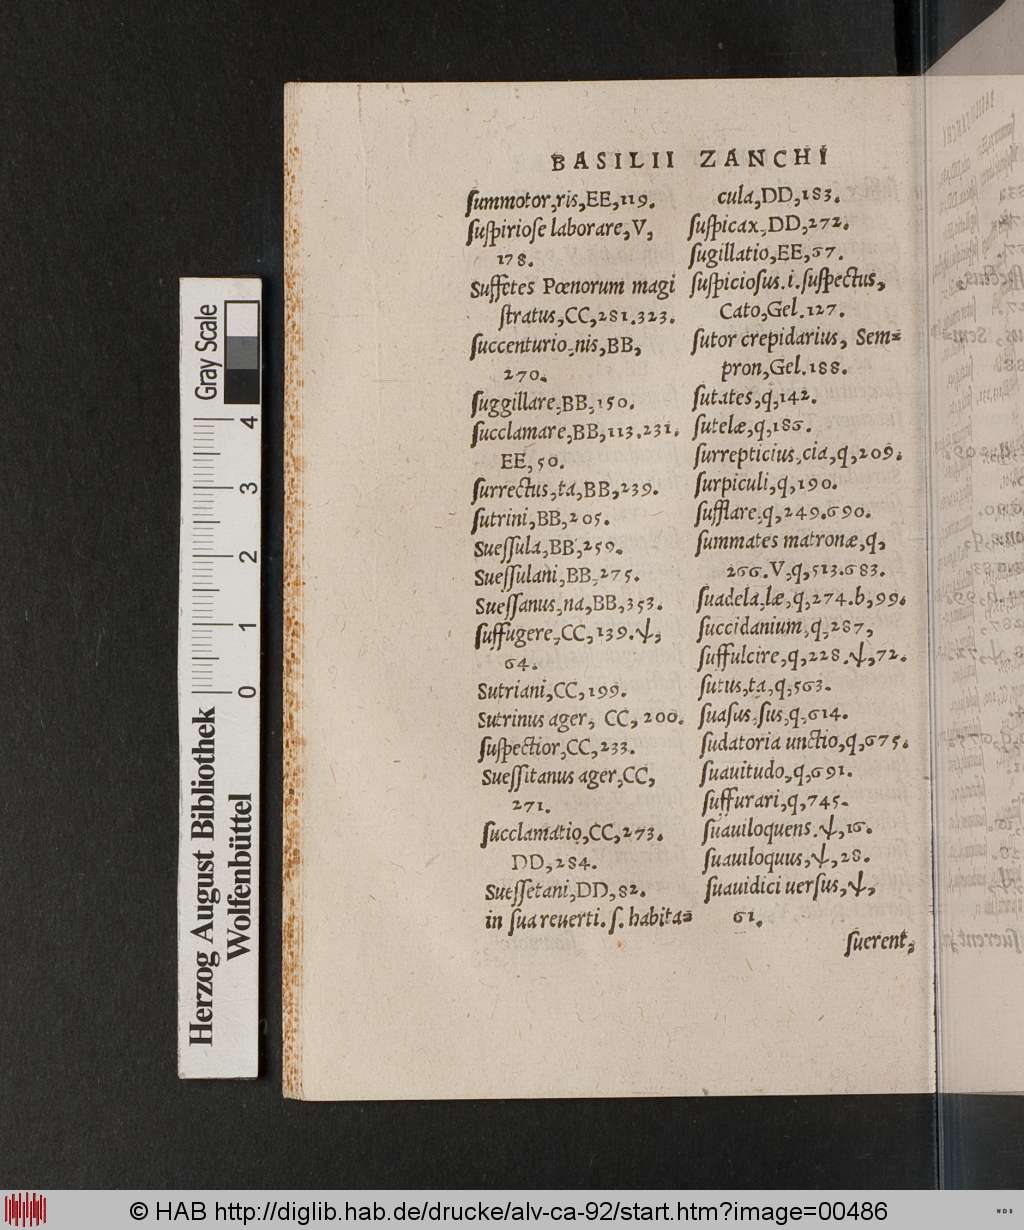 BASILII ZANCHI
ſummotor,ris,EE,119.
ſuſpirioſe laborare,V,
178.
Suffetes Pœnorum magi
ſtratus,CC,281.323.
ſuccenturio,nis,BB,
270.
ſuggillare,BB,150.
ſucclamare,BB,113.231.
EE,50.
ſurrectus,ta,BB,239.
ſutrini,BB,205.
Sueſſula,BB,259.
Sueſſulani,BB,275.
Sueſſanus,na,BB,353.
ſuffugere,CC,139.ψ,
64.
Sutriani,CC,199.
Sutrinus ager, CC,200.
ſuſpectior,CC,233.
Sueſſitanus ager,CC,
271.
ſucclamatio,CC,273.
DD,284.
Sueſſetani,DD,82.
in ſua reuerti. ſ. habita⸗
cula,DD,183.
ſuſpicax,DD,272.
ſugillatio,EE,67.
ſuſpicioſus.i.ſuſpectus,
Cato,Gel.127.
ſutor crepidarius, Sem⸗
pron,Gel.188.
ſutates,q,142.
ſutelæ,q,186.
ſurrepticius,cia,q,209.
ſurpiculi,q,190.
ſufflare,q,249.690.
ſummates matronæ,q,
266.V,q,513.683.
ſuadela,læ,q,274.b,99.
ſuccidanium,q,287,
ſuffulcire,q,228.ψ,72.
ſutus,ta,q,563.
ſuaſus,ſus,q,614.
ſudatoria unctio,q,675.
ſuauitudo,q,691.
ſuffurari,q,745.
ſuauiloquens.ψ,16.
ſuauiloquus,ψ,28.
ſuauidici uerſus,ψ,
61.
ſuerent,
Gray Scale
4
3
2
1
0
Herzog August Bibliothek
Wolfenbüttel
© HAB http://diglib.hab.de/drucke/alv-ca-92/start.htm?image=00486